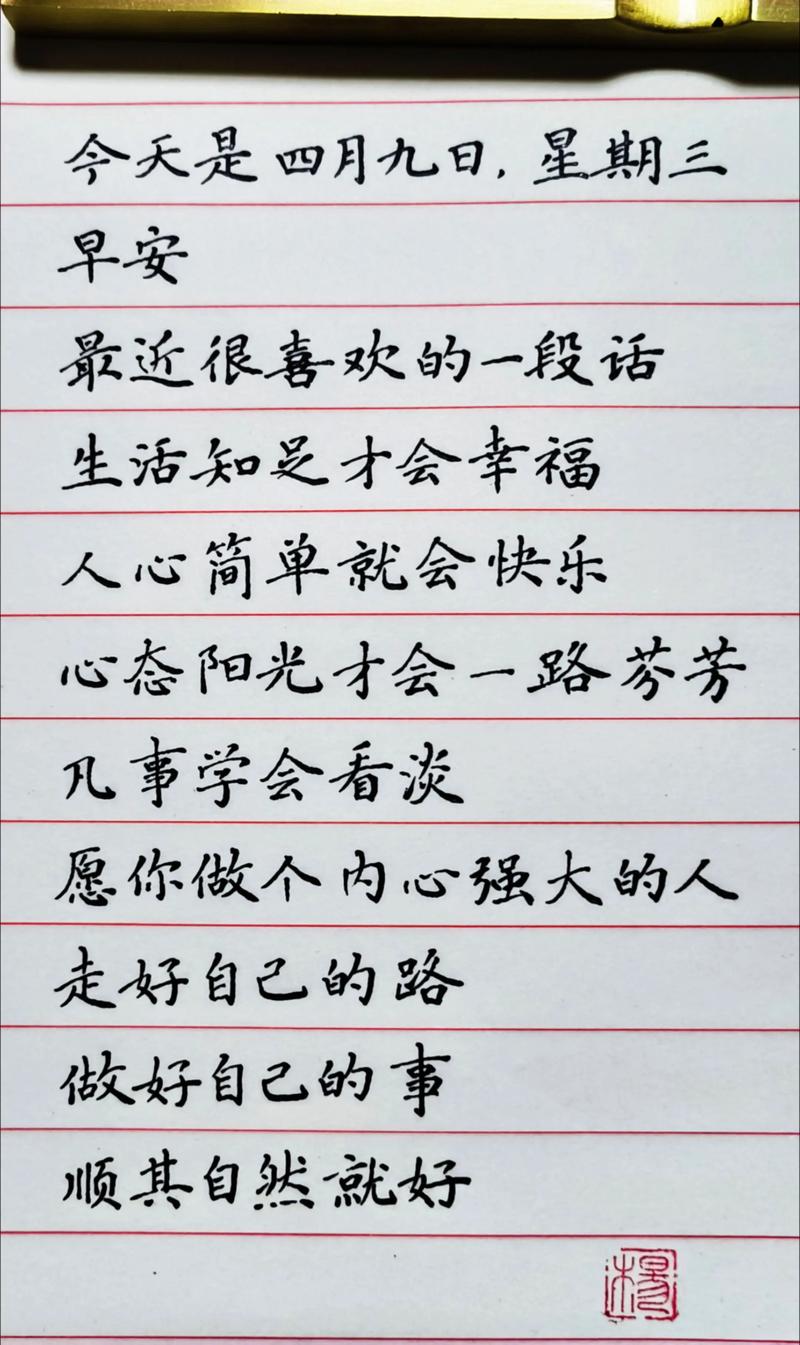 今天是四月九日，星期三
早安
最近很喜欢的一段话
生活知足才会幸福
人心简单就会快乐
心态阳光才会一路芬芳
凡事学会看淡
愿你做个内心强大的人
走好自己的路
做好自己的事
顺其自然就好
楊